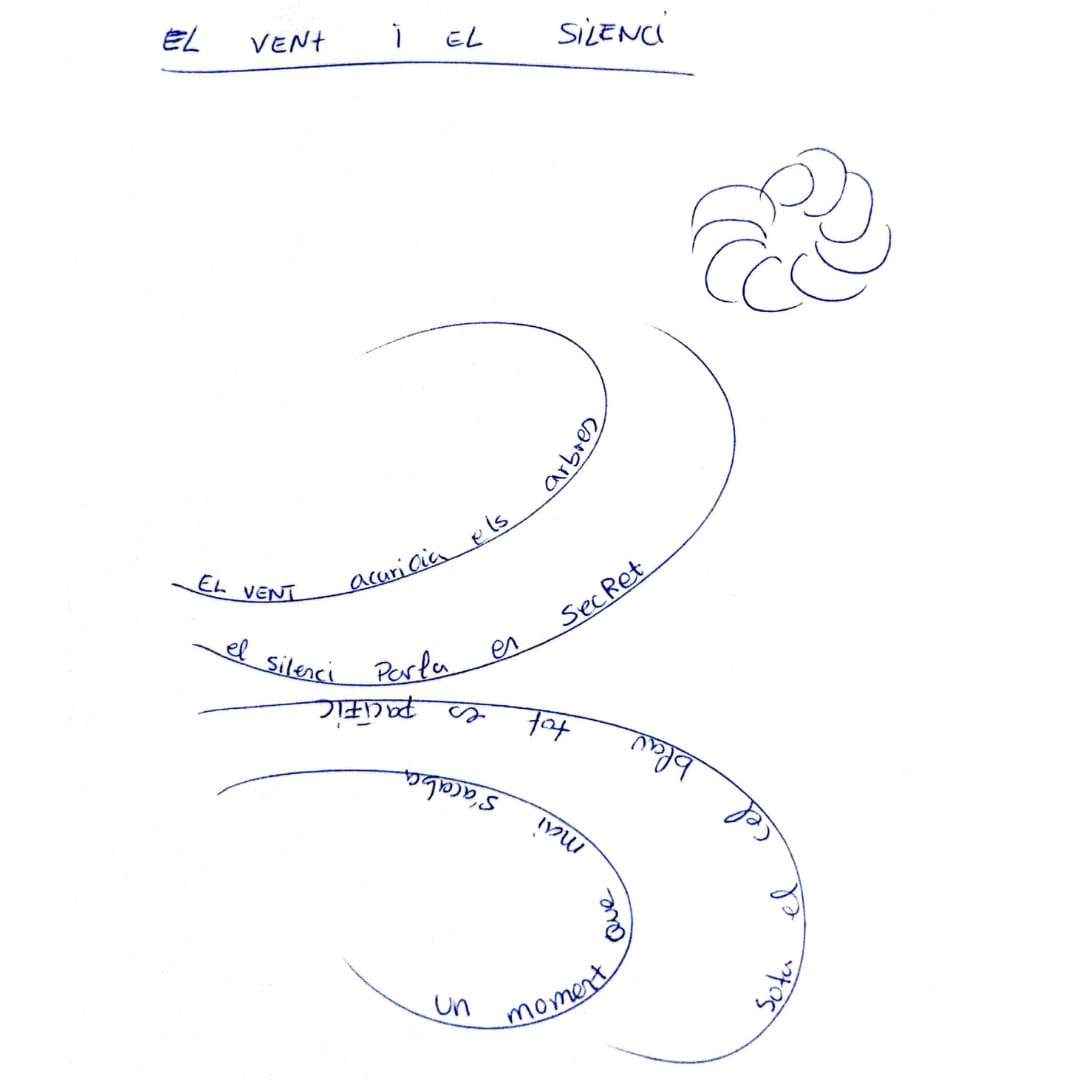 EL VENT i EL SiLENCi
EL VENT acaricia els arbres
el silenci Parla en secRet
sota el cel blau tot es pacífic
un moment que mai s'acaba